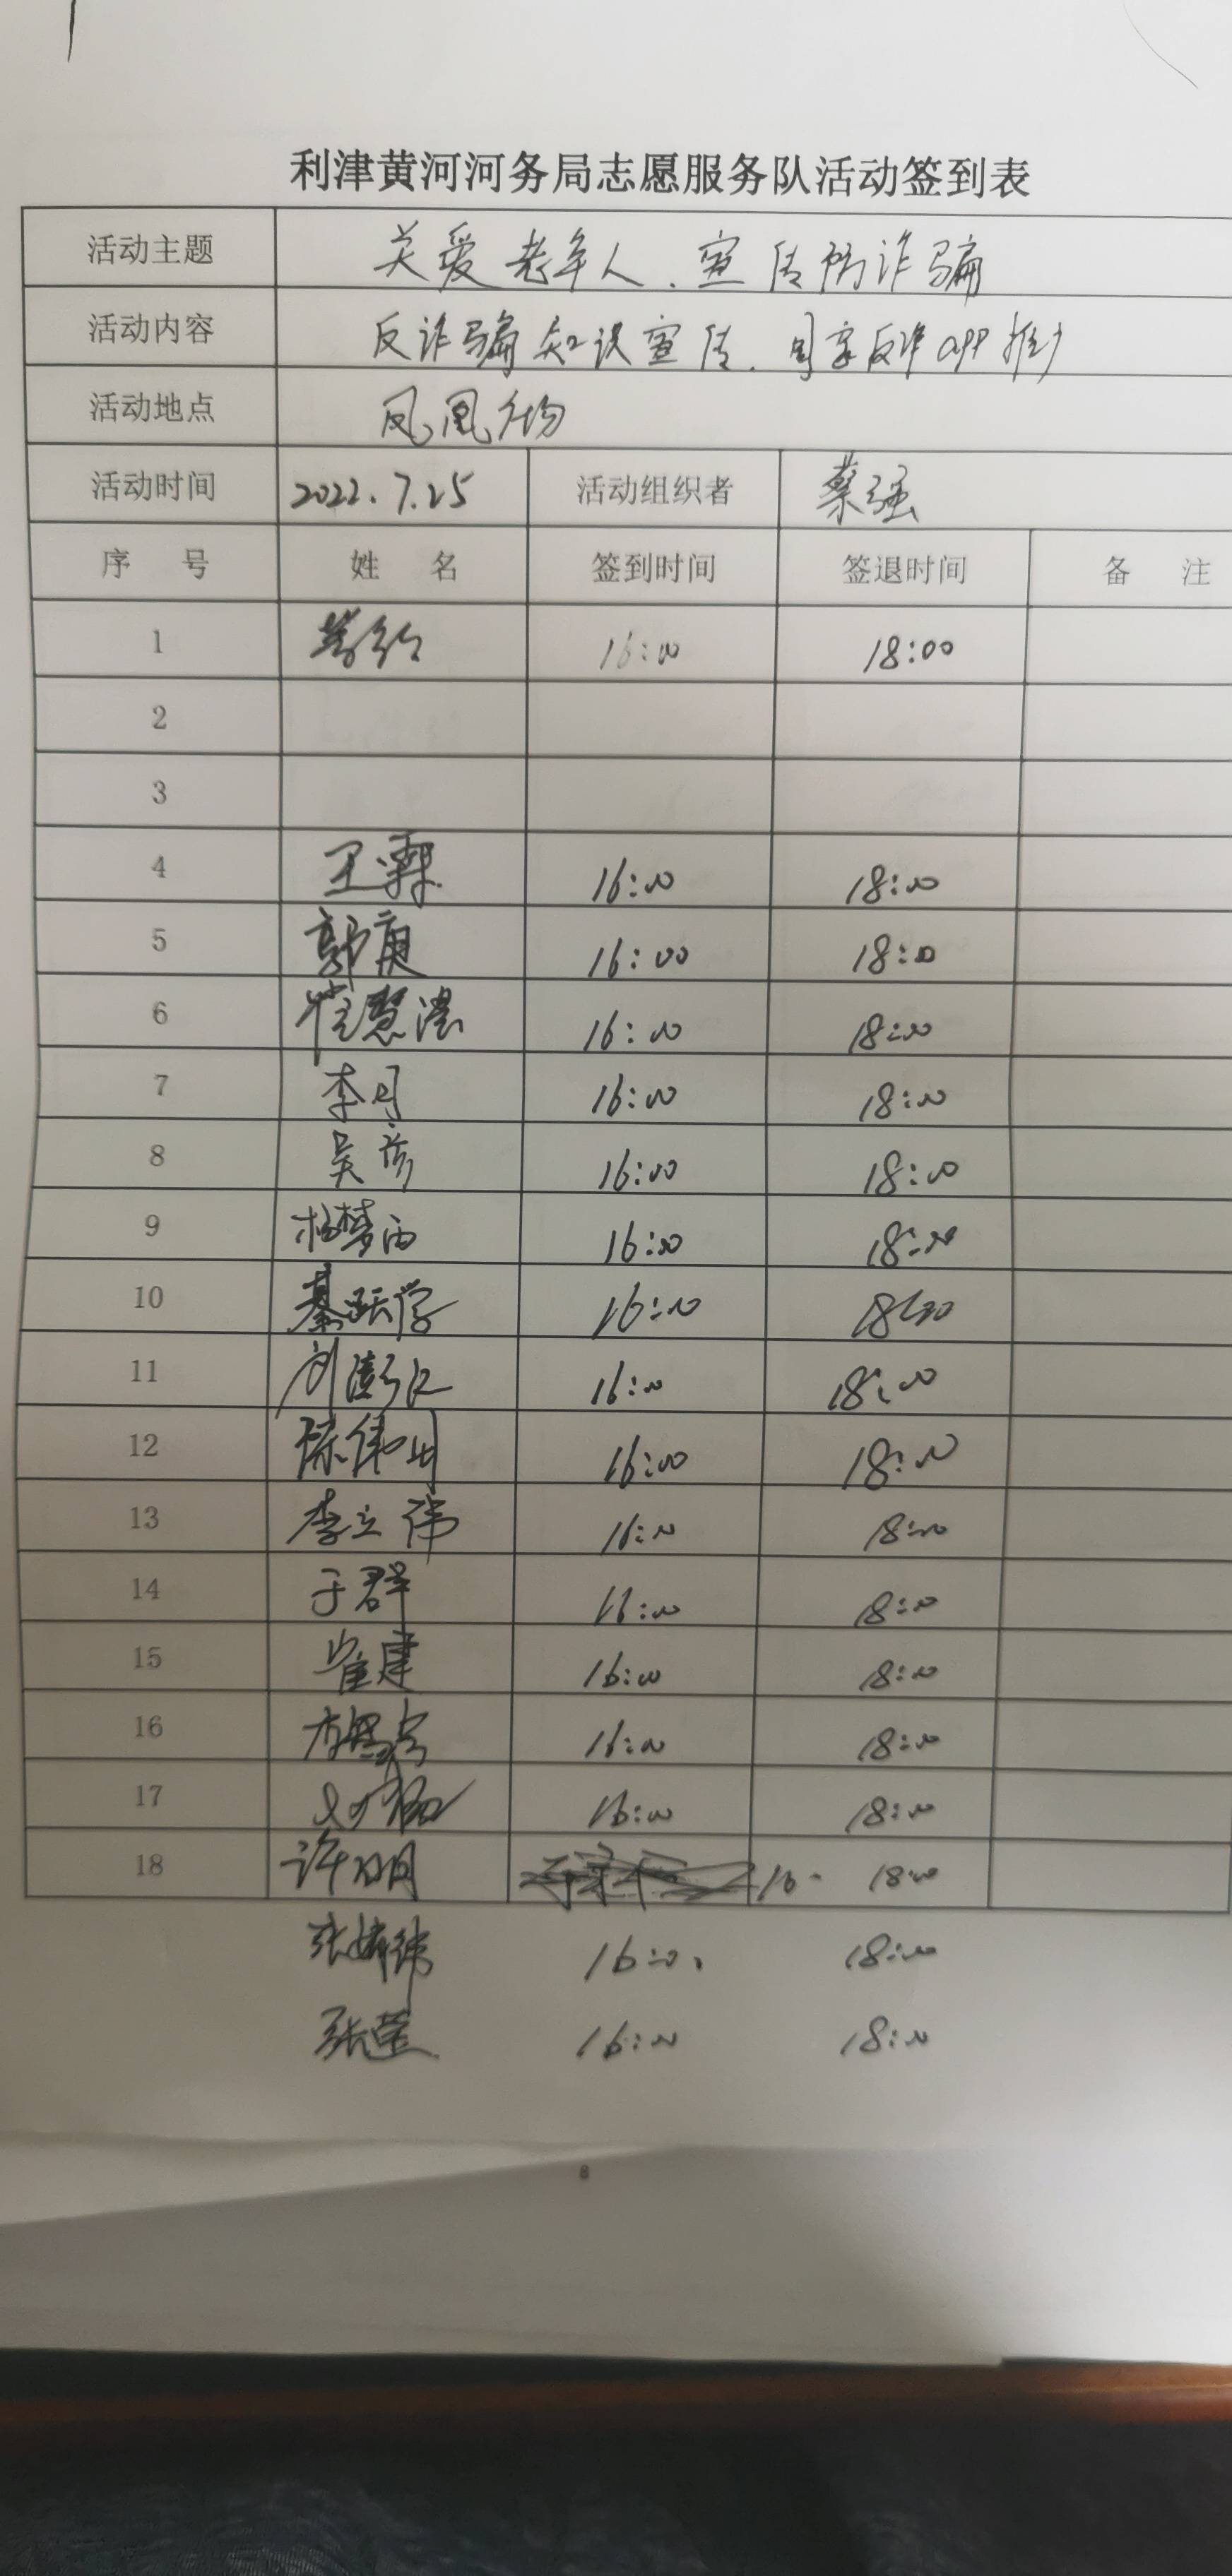 利津黄河河务局志愿服务队活动签到表
活动主题 关爱老年人、宣传防诈骗
活动内容 反诈骗知识宣传、国家反诈app推广
活动地点 凤凰广场
活动时间 2022.7.25 活动组织者 蔡强
序号 姓名 签到时间 签退时间 备注
1 16:00 18:00
2
3
4 王霖 16:00 18:00
5 郭庚 16:00 18:00
6 崔慧滢 16:00 18:00
7 李月 16:00 18:00
8 吴彦 16:00 18:00
9 杨梦雨 16:00 18:00
10 綦跃学 16:00 18:00
11 刘澎江 16:00 18:00
12 陈伟明 16:00 18:00
13 李立伟 16:00 18:00
14 于群 16:00 18:00
15 崔建 16:00 18:00
16 16:00 18:00
17 16:00 18:00
18 许明 16 18:00
张婷纬 16:00 18:00
张莹 16:00 18:00
8